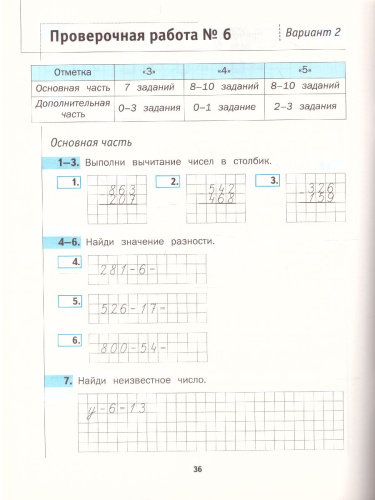 Проверочная работа № 6
Вариант 2
Отметка «3» «4» «5»
Основная часть 7 заданий 8–10 заданий 8–10 заданий
Дополнительная часть 0–3 задания 0–1 задание 2–3 задания
Основная часть
1–3. Выполни вычитание чисел в столбик.
1. 2. 3.
863 542 - 326
207 468 159
4–6. Найди значение разности.
4. 281-6=
5. 526-17=
6. 800-54=
7. Найди неизвестное число.
у-6=13
36